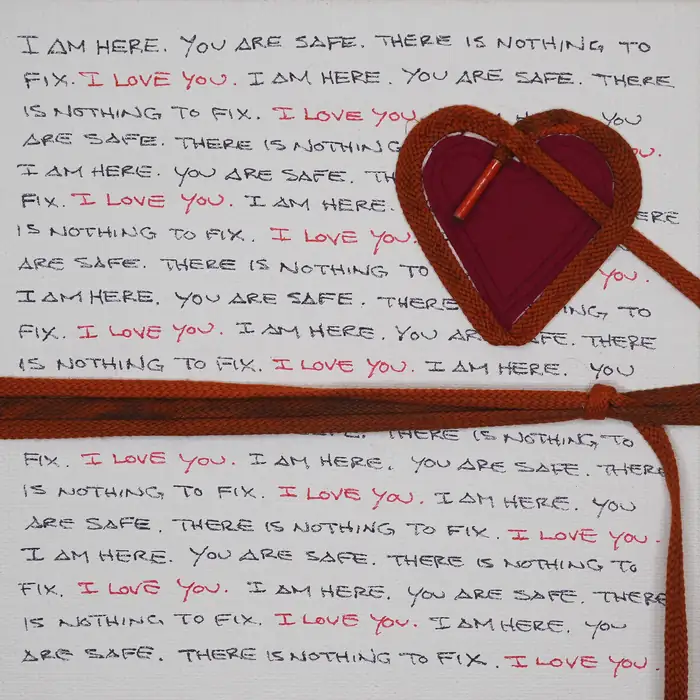 I AM HERE. YOU ARE SAFE. THERE IS NOTHING TO
FIX. I LOVE YOU. I AM HERE. YOU ARE SAFE. THERE
IS NOTHING TO FIX. I LOVE YOU. YOU
ARE SAFE. THERE IS NOTHING YOU.
I AM HERE. YOU ARE SAFE. TH
FIX. I LOVE YOU. I AM HERE. ERE
IS NOTHING TO FIX. I LOVE YOU.
ARE SAFE. THERE IS NOTHING TO YOU.
I AM HERE. YOU ARE SAFE. THERE ING TO
FIX. I LOVE YOU. I AM HERE. YOU AR SAFE. THERE
IS NOTHING TO FIX. I LOVE YOU. I AM HERE. YOU
THERE IS NOTHING TO
FIX. I LOVE YOU. I AM HERE. YOU ARE SAFE. THERE
IS NOTHING TO FIX. I LOVE YOU. I AM HERE. YOU
ARE SAFE. THERE IS NOTHING TO FIX. I LOVE YOU.
I AM HERE. YOU ARE SAFE. THERE IS NOTHING TO
FIX. I LOVE YOU. I AM HERE. YOU ARE SAFE. THERE
IS NOTHING TO FIX. I LOVE YOU. I AM HERE. YOU
ARE SAFE. THERE IS NOTHING TO FIX. I LOVE YOU.